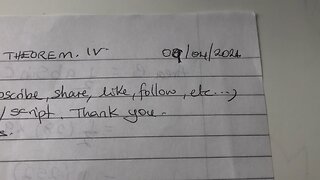 THEOREM. IV. 09/04/2021
bscribe, share, like, follow, etc...,
/script. Thank you.
s.